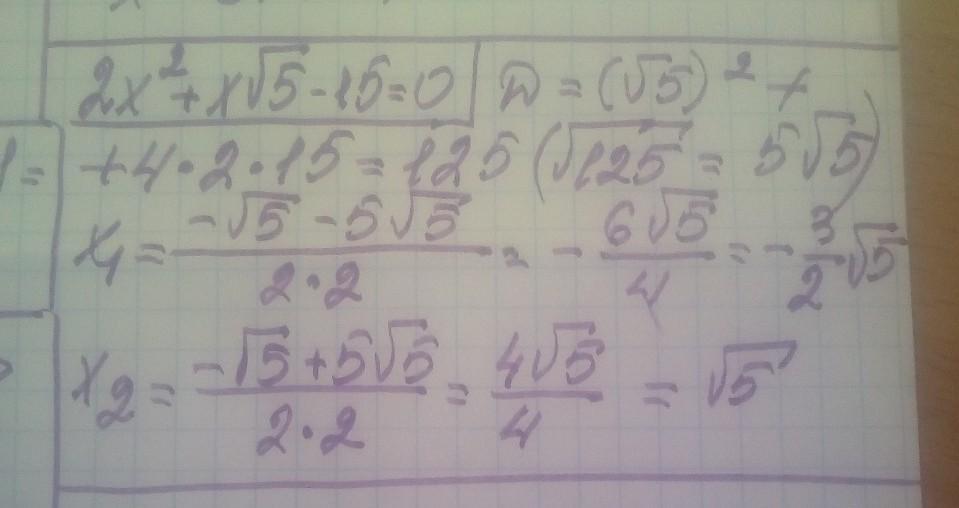 2x² + x√5 - 15 = 0 | D = (√5)² +
1 = + 4 · 2 · 15 = 125 (√125 = 5√5)
x₁ = (-√5 - 5√5)/(2·2) = - 6√5/4 = - 3/2 √5
x₂ = (-√5 + 5√5)/(2·2) = 4√5/4 = √5